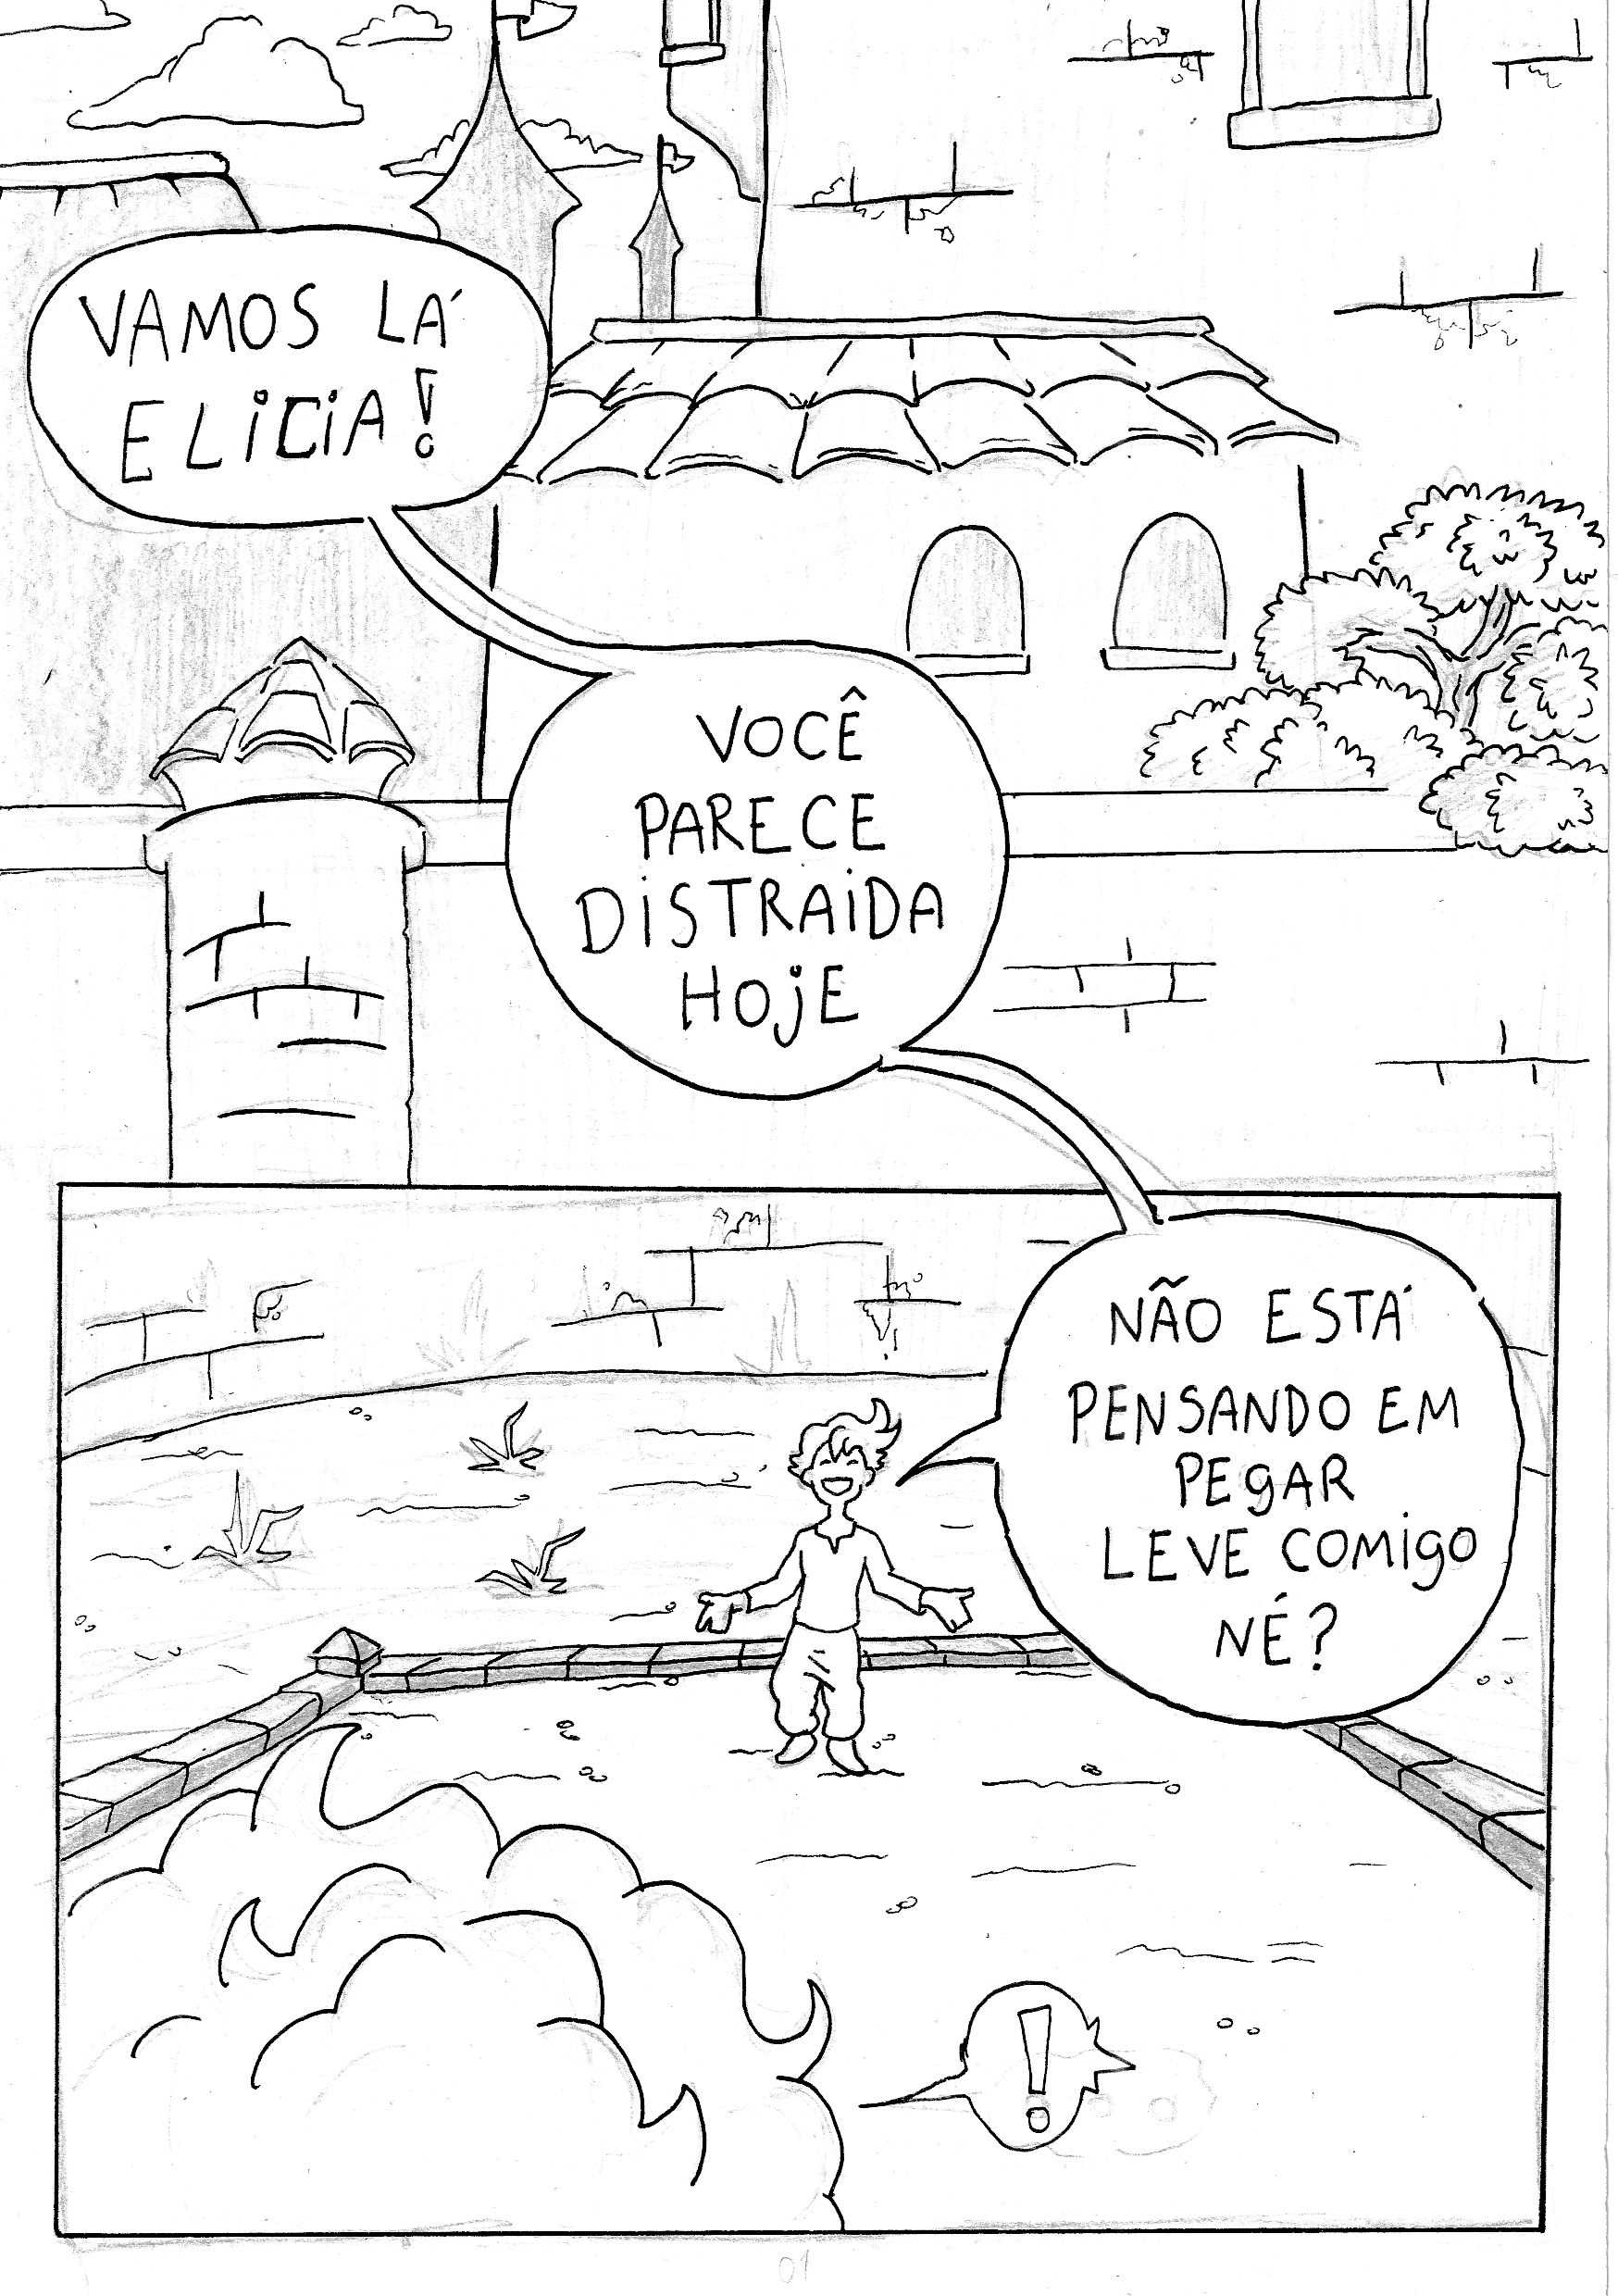 VAMOS LÁ
ELICIA!
VOCÊ
PARECE
DISTRAIDA
HOJE
NÃO ESTÁ
PENSANDO EM
PEGAR
LEVE COMIGO
NÉ?
!
01